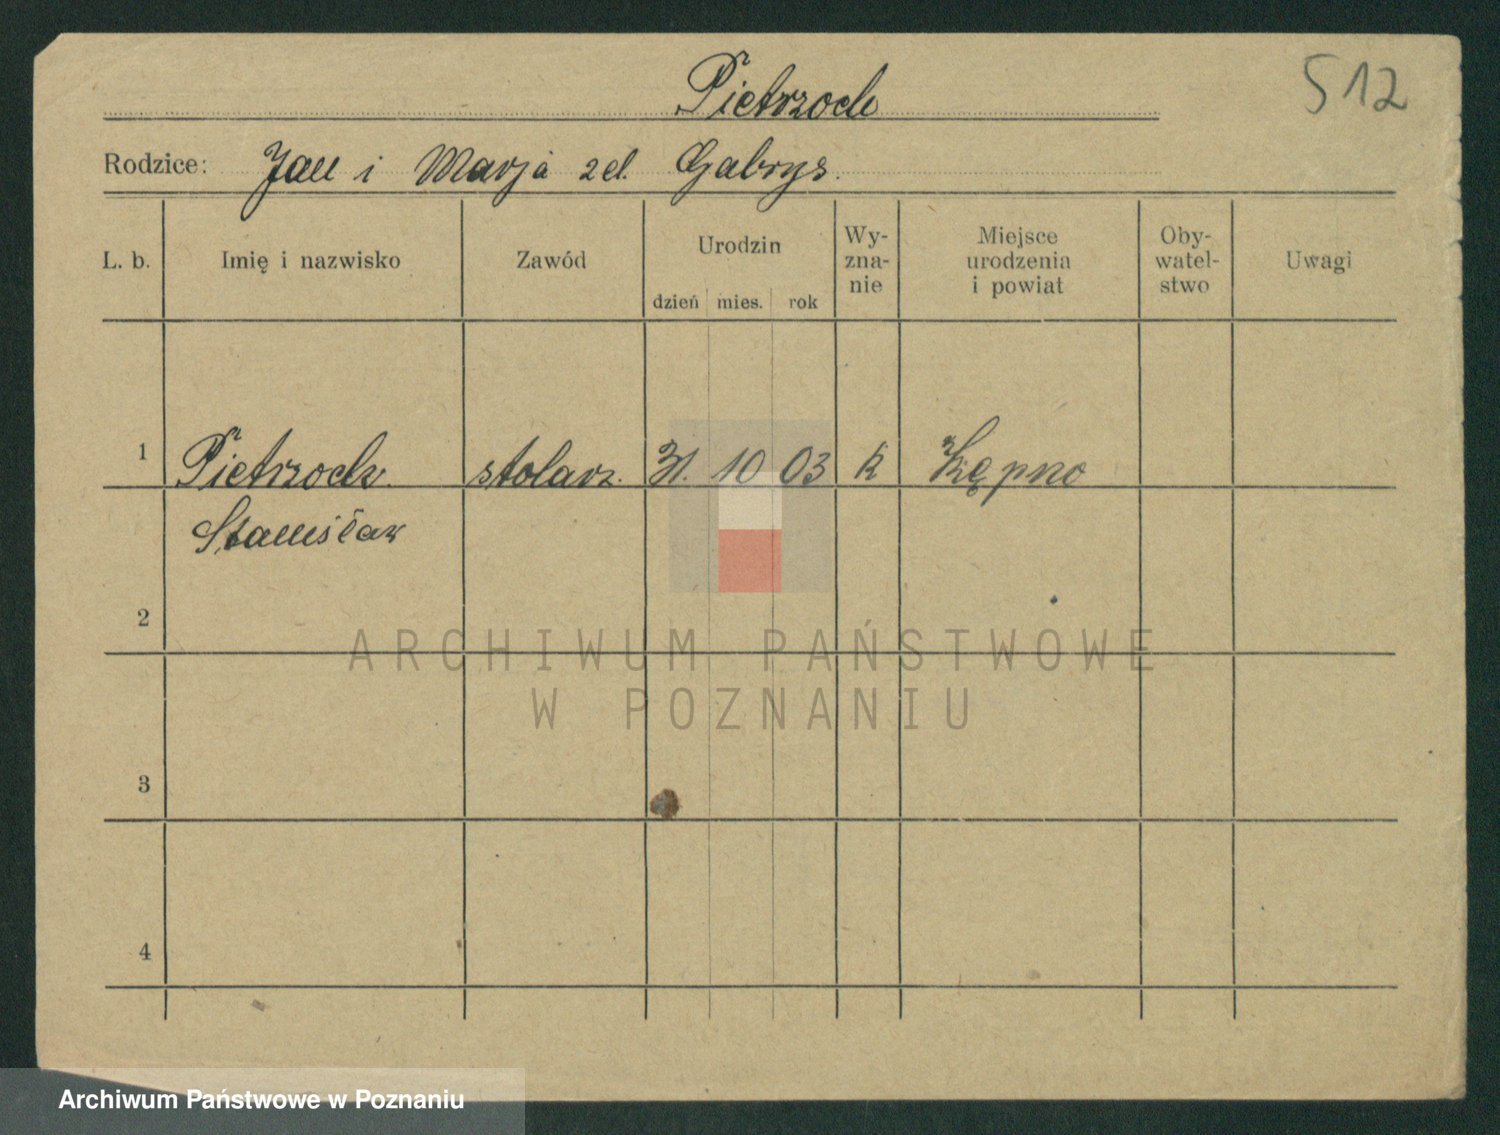 Pietrzoch
512
Rodzice: Jan i Marja zd. Gabryś.
L. b. Imię i nazwisko Zawód Urodzin dzień mies. rok Wy-zna-nie Miejsce urodzenia i powiat Oby-watel-stwo Uwagi
1 Pietrzoch. stolarz. 31. 10 03 k Kępno
Stanisław
2
ARCHIWUM PAŃSTWOWE
W POZNANIU
3
4
Archiwum Państwowe w Poznaniu